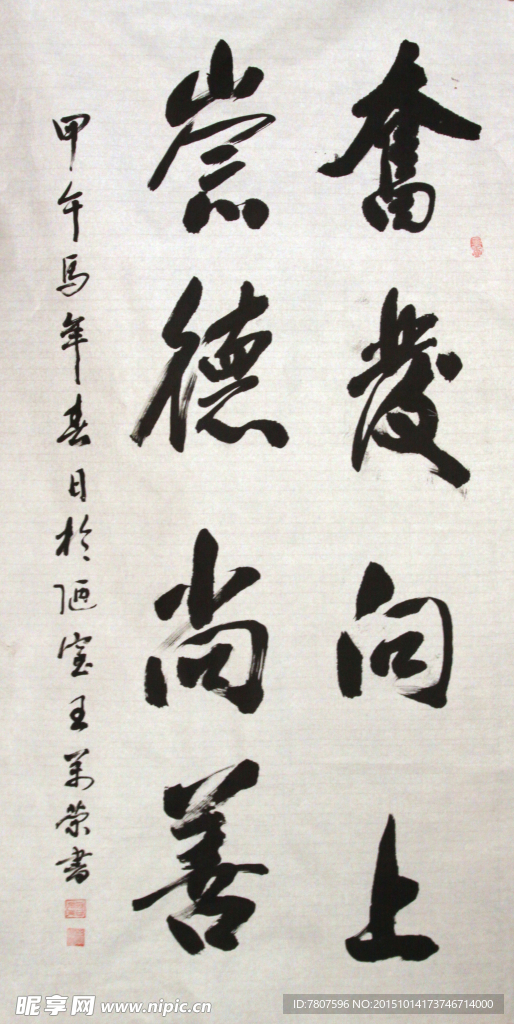 奮發向上
崇德尚善
甲午馬年春日於陋室王萬榮書
昵享网 www.nipic.cn
ID:7807596 NO:20151014173746714000